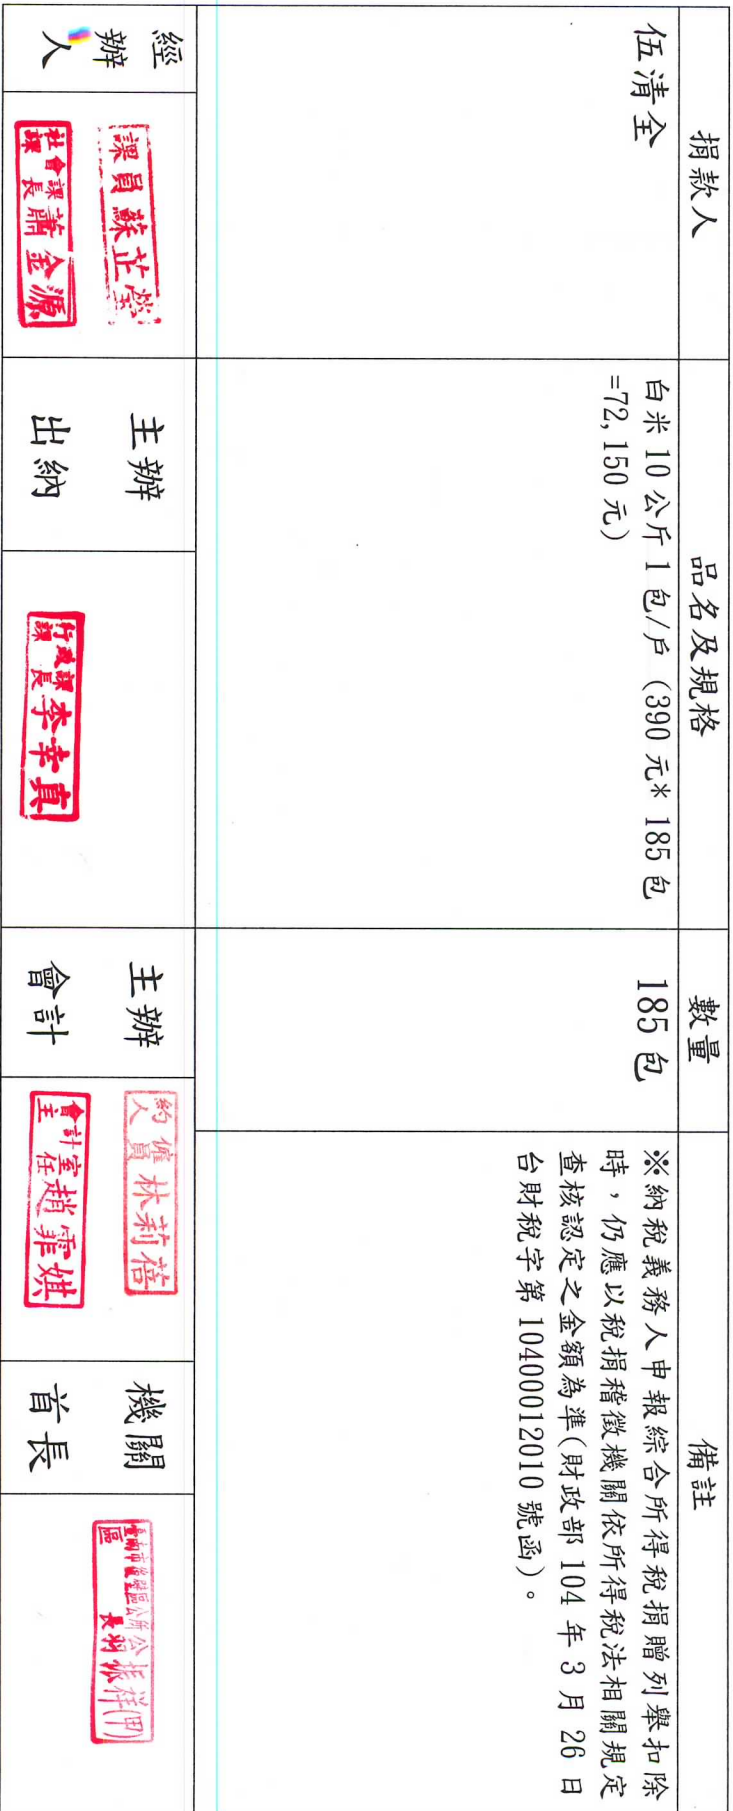 捐款人 品名及規格 數量 備註
伍清全
白米 10 公斤 1 包/戶 (390 元* 185 包
=72,150 元)
185 包
※納稅義務人申報綜合所得稅捐贈列舉扣除
時，仍應以稅捐稽徵機關依所得稅法相關規定
查核認定之金額為準(財政部 104 年 3 月 26 日
台財稅字第 10400012010 號函)。
經辦人
課員蘇芷瑩
社會課課長蕭金源
主辦
出納
行政課課長李幸真
主辦
會計
約僱人員林莉蓓
會計室主任趙霏娸
機關
首長
區長
振祥(甲)